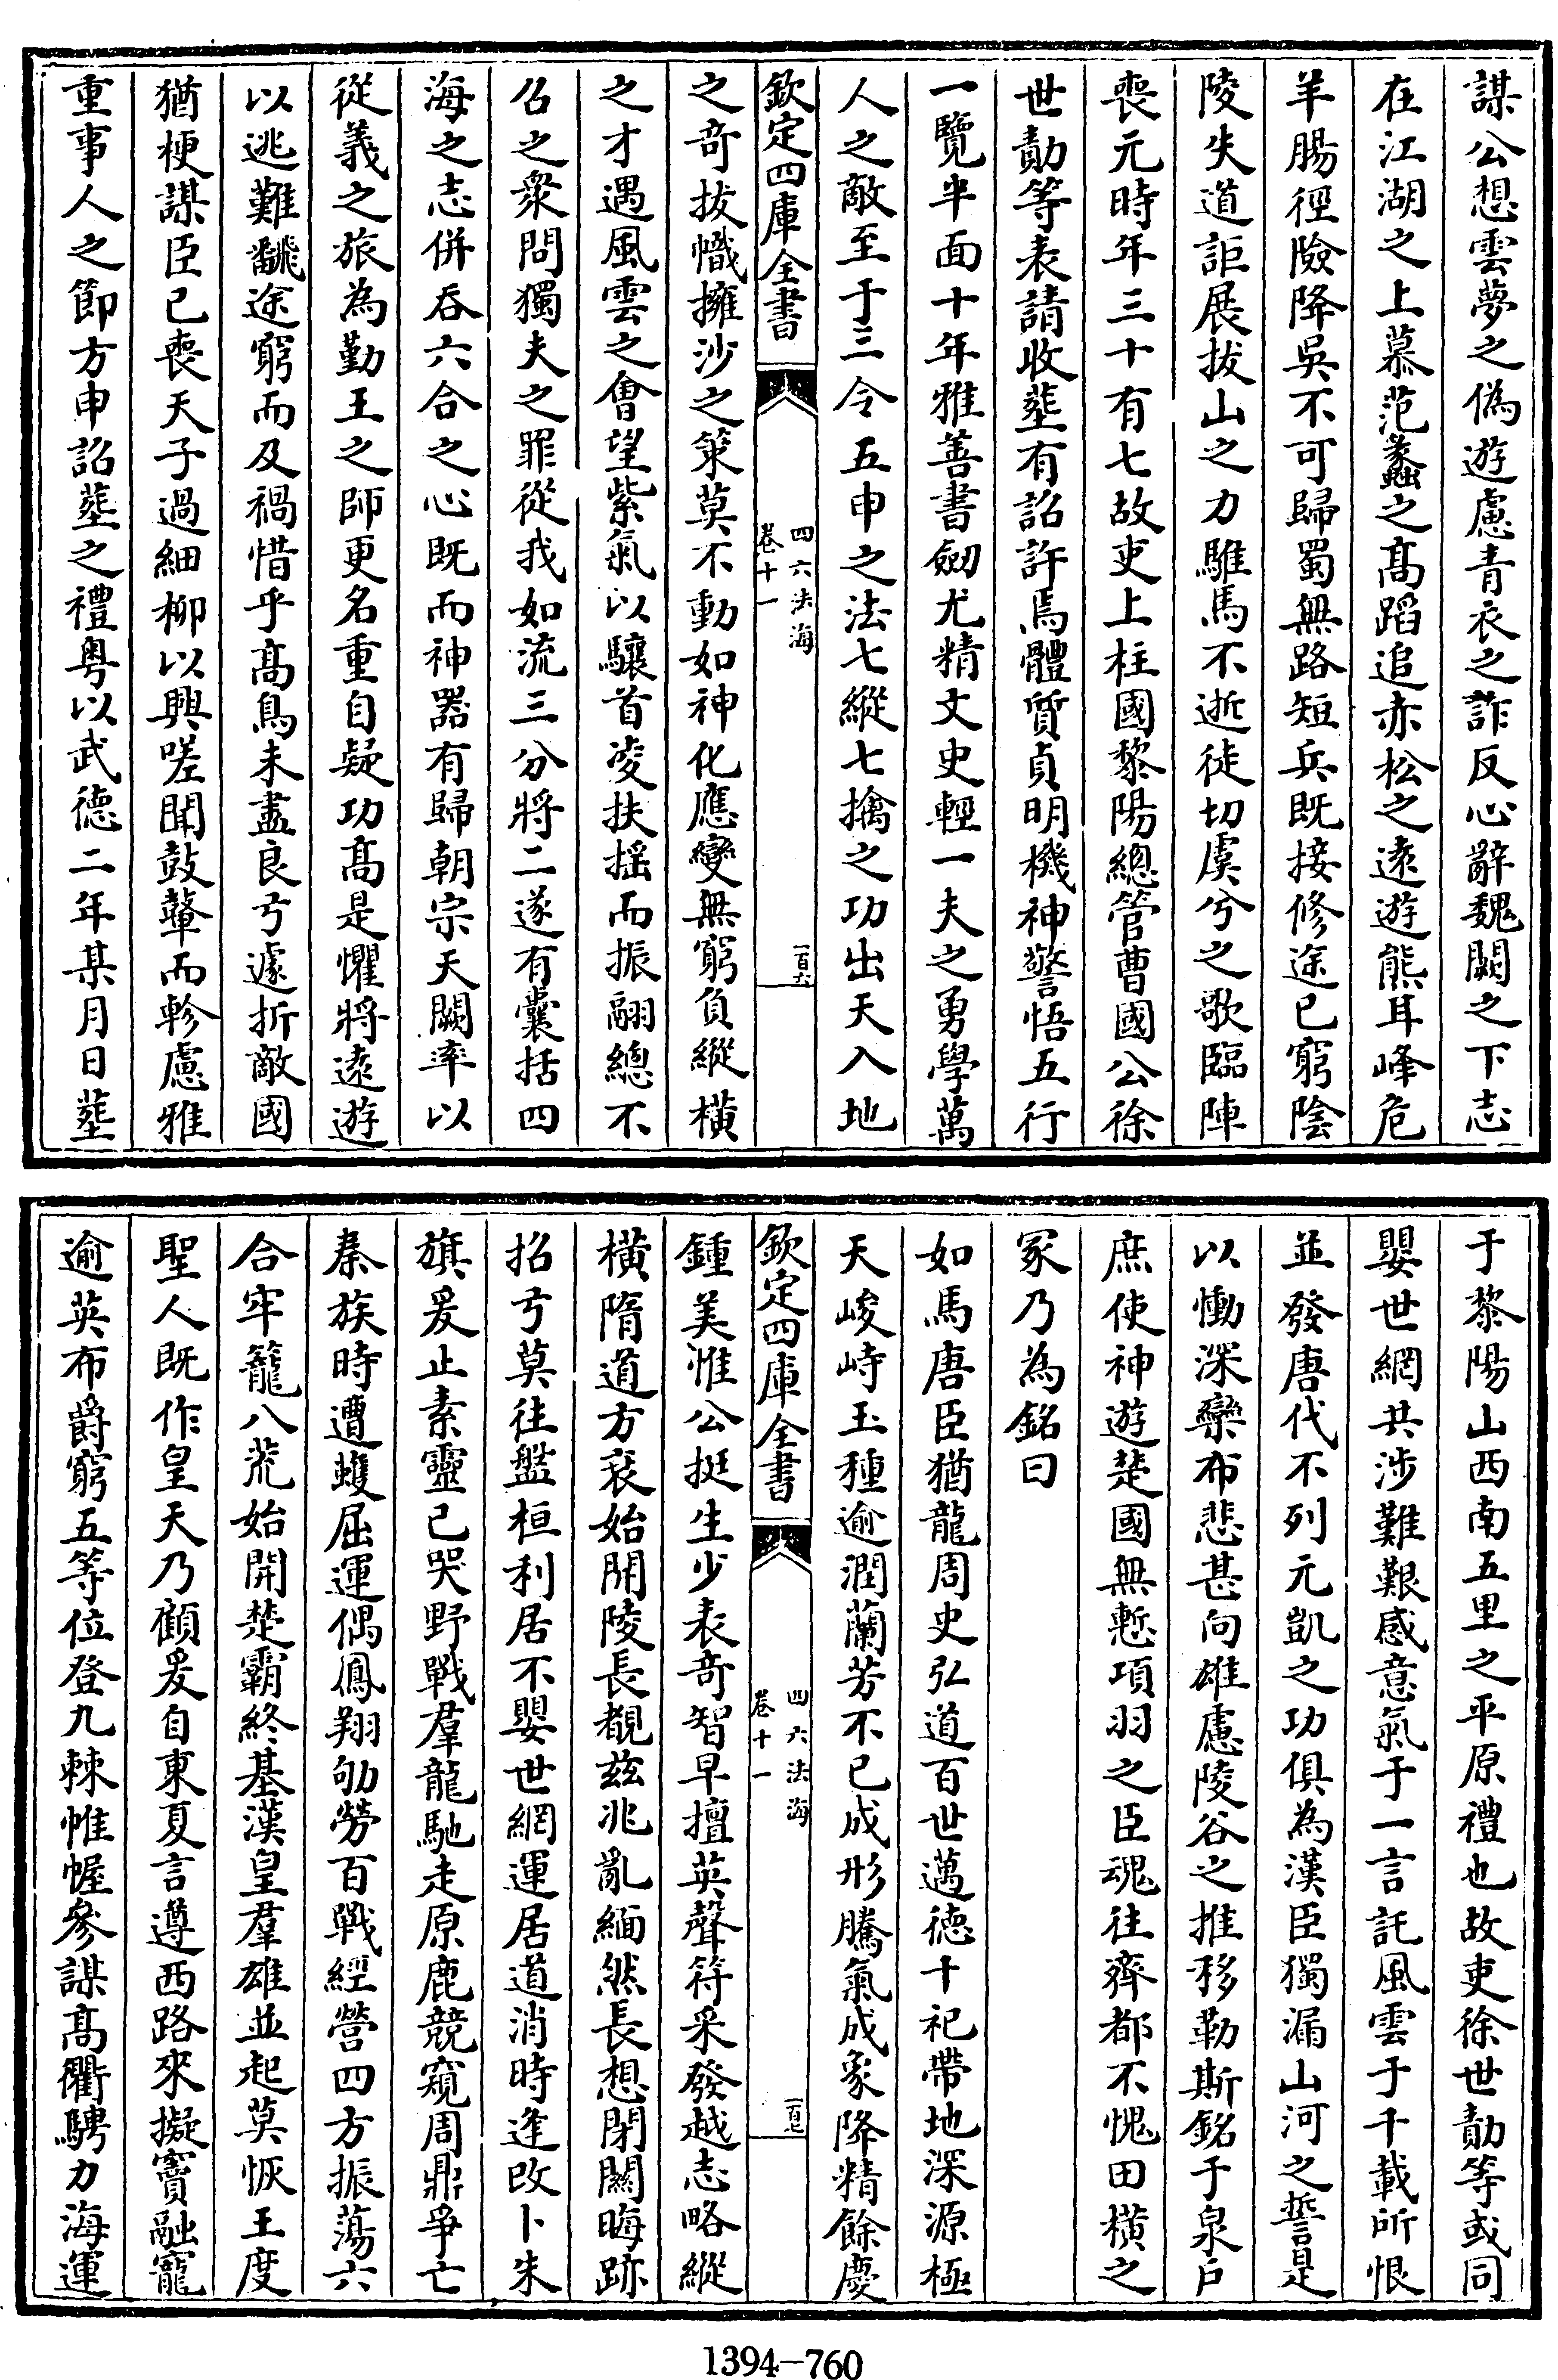 謀公想雲夢之偽遊慮青衣之詐反心辭魏闕之下志
在江湖之上慕范蠡之髙蹈追赤松之逺遊熊耳峰危
羊腸徑險降吳不可歸蜀無路短兵既接修途已窮陰
陵失道詎展拔山之力騅馬不逝徒切虞兮之歌臨陣
喪元時年三十有七故吏上柱國黎陽總管曹國公徐
世勣等表請收葬有詔許焉體質貞明機神警悟五行
一覽半面十年雅善書劒尤精文史輕一夫之勇學萬
人之敵至于三令五申之法七縱七擒之功出天入地
欽定四庫全書
四六法海
卷十一
一百六
之竒拔幟擁沙之策莫不動如神化應變無窮負縱橫
之才遇風雲之會望紫氣以驤首凌扶揺而振翮總不
召之衆問獨夫之罪從我如流三分將二遂有囊括四
海之志併吞六合之心既而神器有歸朝宗天闕率以
從義之旅為勤王之師更名重自疑功髙是懼將逺遊
以逃難飜途窮而及禍惜乎髙鳥未盡良弓遽折敵國
猶梗謀臣已喪天子過細柳以興嗟聞鼓鼙而軫慮雅
重事人之節方申詔葬之禮粤以武徳二年某月日葬
于黎陽山西南五里之平原禮也故吏徐世勣等或同
嬰世網共涉難艱感意氣于一言託風雲于千載所恨
並發唐代不列元凱之功俱為漢臣獨漏山河之誓是
以慟深欒布悲甚向雄慮陵谷之推移勒斯銘于泉户
庶使神遊楚國無慙項羽之臣魂往齊都不愧田橫之
冢乃為銘曰
如馬唐臣猶龍周史弘道百世邁徳十祀帶地深源極
天峻峙玉種逾潤蘭芳不已成形騰氣成象降精餘慶
欽定四庫全書
四六法海
卷十一
一百七
鍾美惟公挺生少表竒智早擅英聲符采發越志略縱
橫隋道方衰始開陵長覩兹兆亂緬然長想閉關晦跡
招弓莫往盤桓利居不嬰世網運居道消時逢改卜朱
旗爰止素靈已哭野戰羣龍馳走原鹿競窺周鼎爭亡
秦族時遭蠖屈運偶鳳翔劬勞百戰經營四方振蕩六
合牢籠八荒始開楚霸終基漢皇羣雄並起莫恢王度
聖人既作皇天乃顧爰自東夏言遵西路來擬竇融寵
逾英布爵窮五等位登九棘帷幄參謀髙衢騁力海運
1394-760